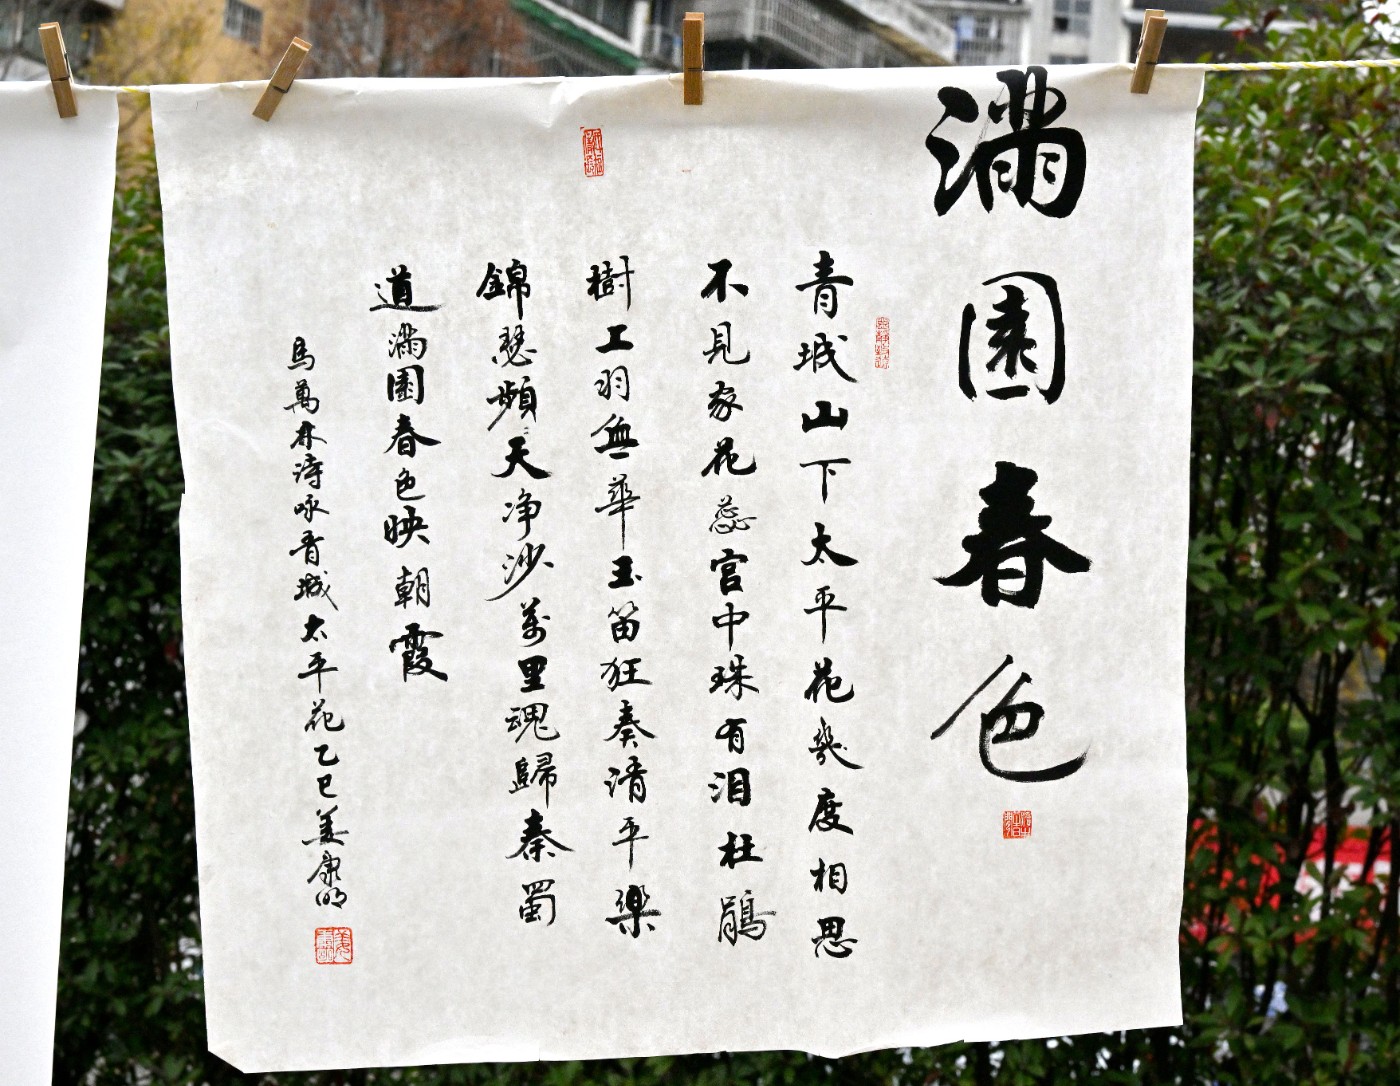 滿園春色
青城山下太平花幾度相思
不見家花蕊宮中珠有泪杜鵑
樹上羽血華玉笛狂奏清平樂
錦瑟頻天净沙萬里魂歸秦蜀
道滿園春色映朝霞
馬萬林詩咏青城太平花乙巳姜康明